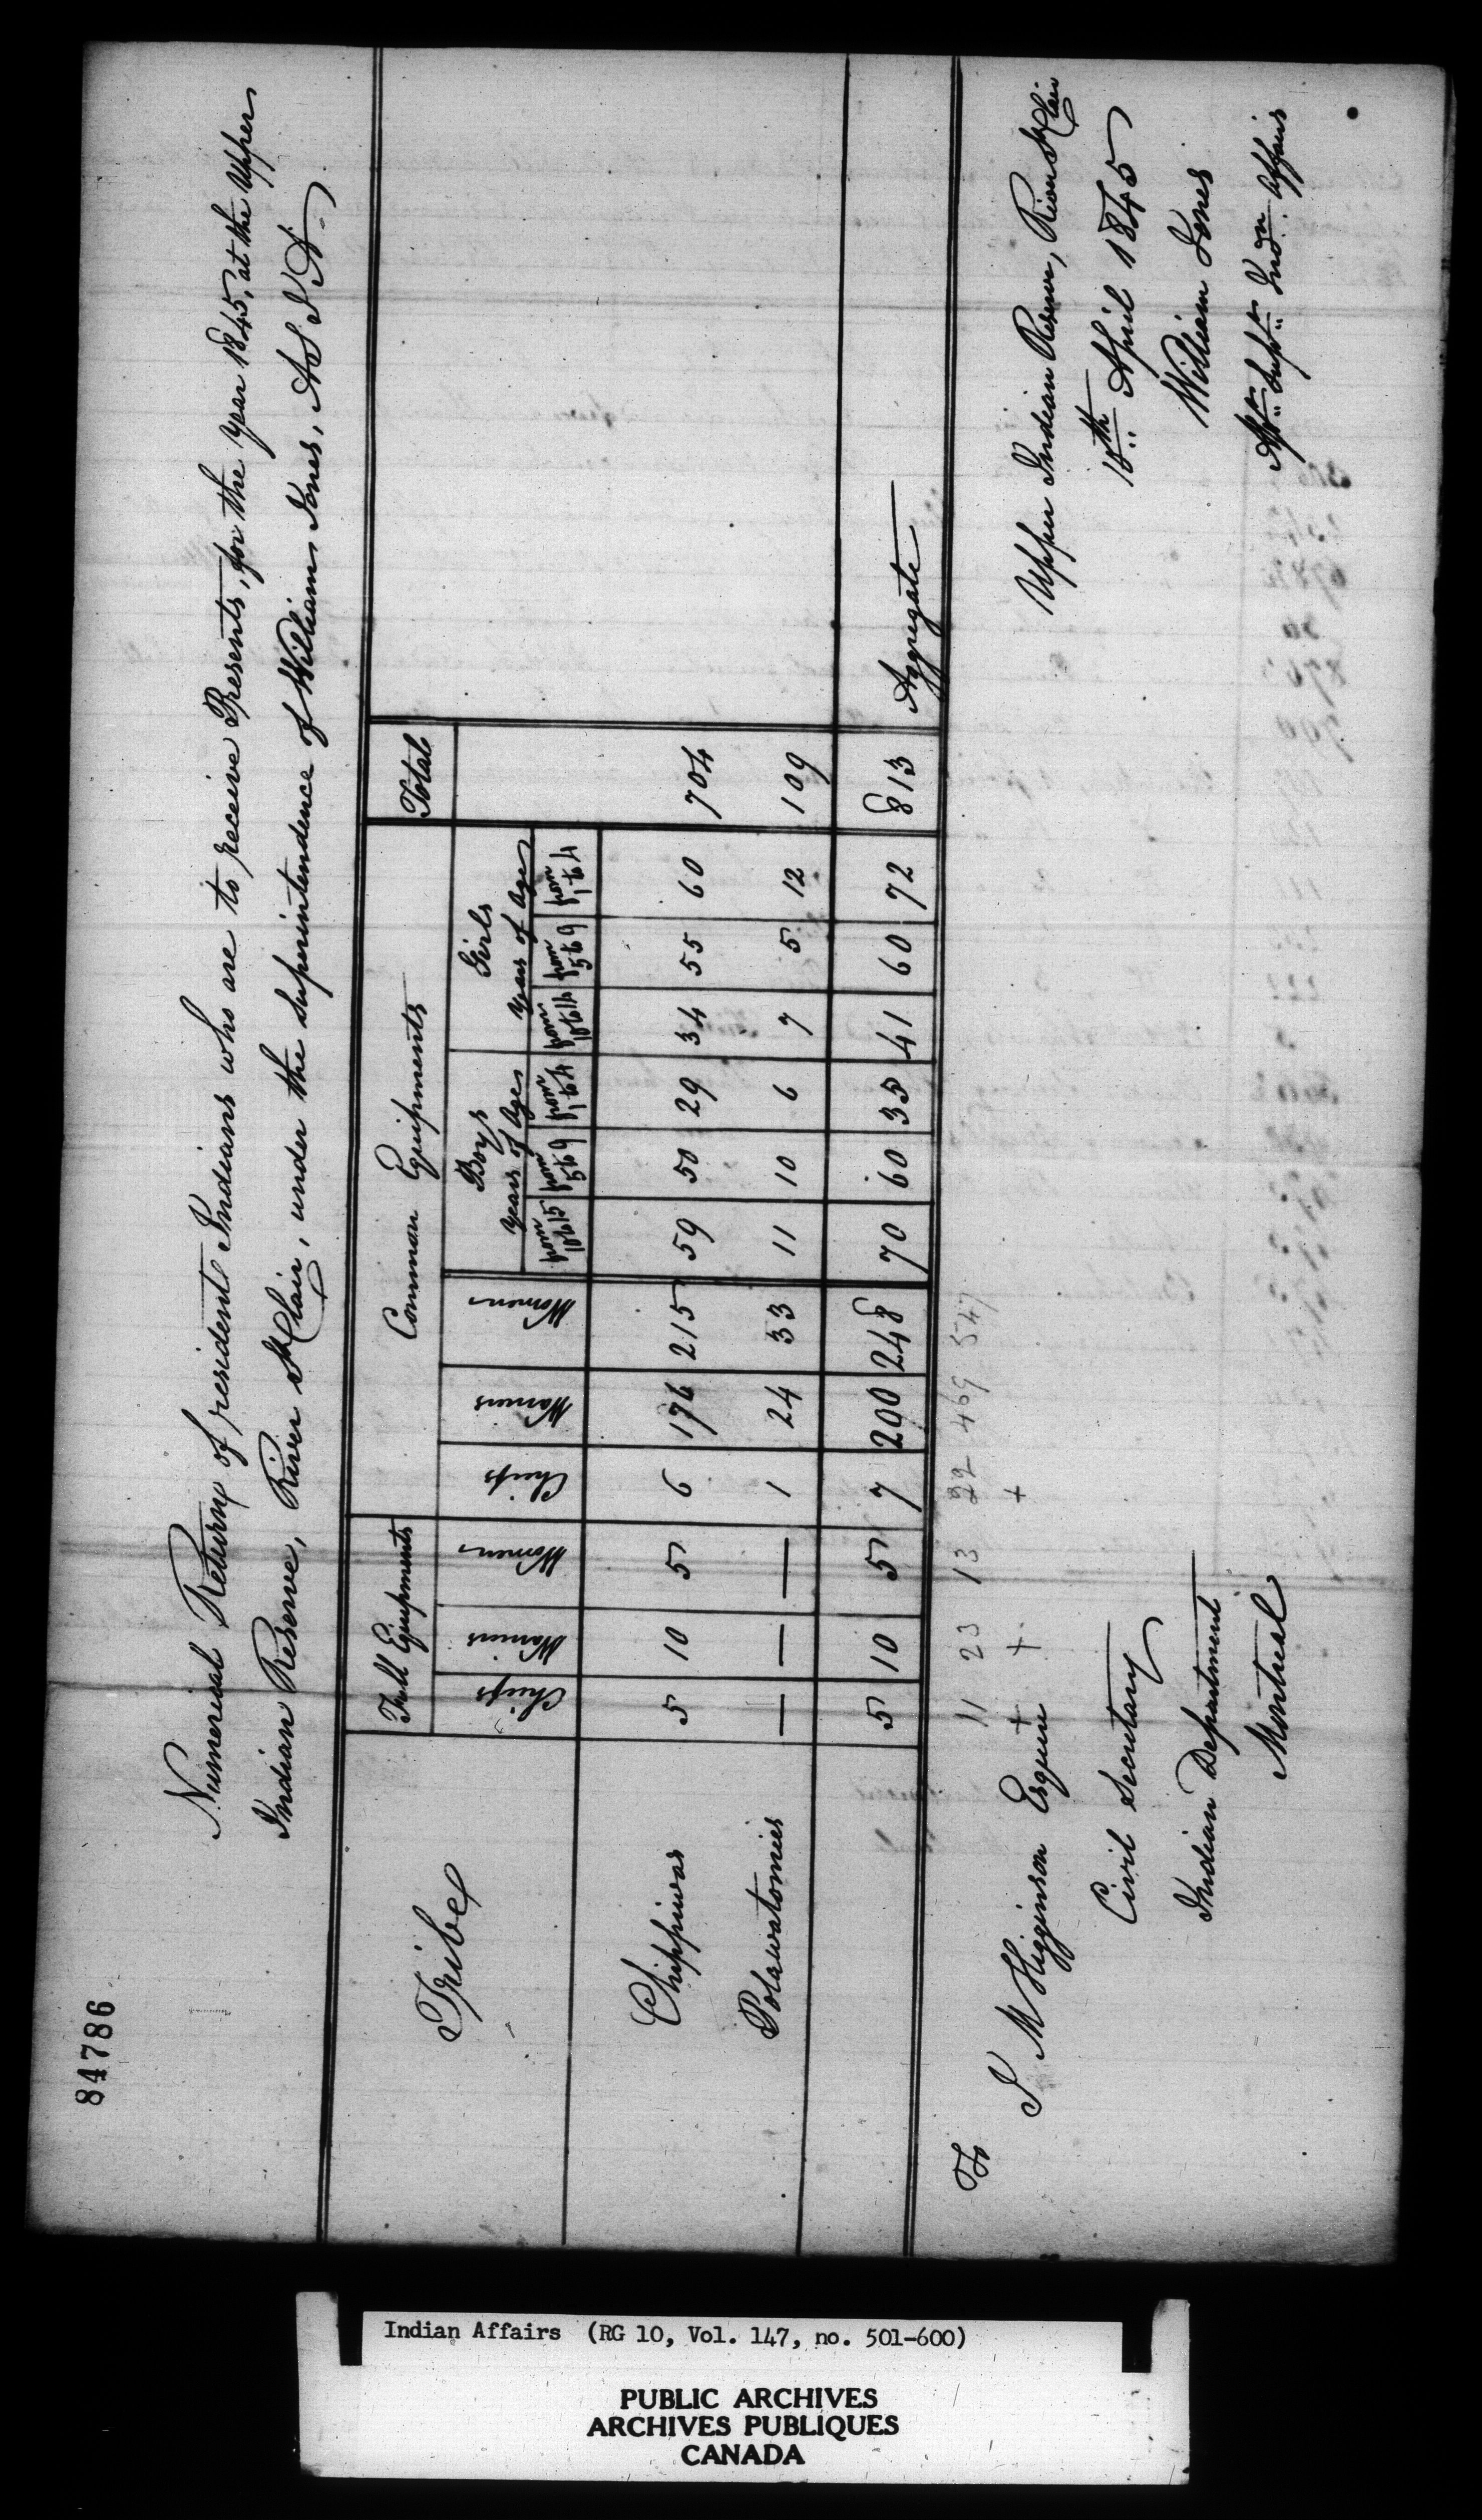 84786
Numerical Return of resident Indians who are to receive Presents, for the Year 1845, at the Upper
Indian Reserve, River St Clair, under the Superintendence of William Jones, A S I A
Tribe
Full Equipments
Common Equipments
Total
Chiefs Warriors Women Chiefs Warriors Women
Boys
Years of Age
Girls
Years of Age
from 10 to 15 from 5 to 9 from 1 to 4 from 10 to 14 from 5 to 9 from 1 to 4
Chippiwas 5 10 5 6 176 215 59 50 29 34 55 60 704
Potawatomies — — — 1 24 33 11 10 6 7 5 12 109
5 10 5 7 200 248 70 60 35 41 60 72 813 Aggregate
11 23 13 22 469 547
+ + +
To
J M Higginson Esquire
Civil Secretary
Indian Department
Montreal
Upper Indian Reserve, River St Clair
10th April 1845
William Jones
Asst Supt Indn Affairs
Indian Affairs (RG 10, Vol. 147, no. 501-600)
PUBLIC ARCHIVES
ARCHIVES PUBLIQUES
CANADA